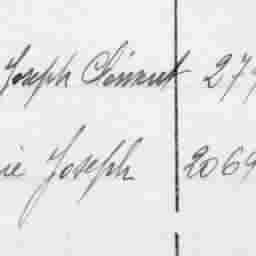 Joseph Clément 277
ie Joseph 2069